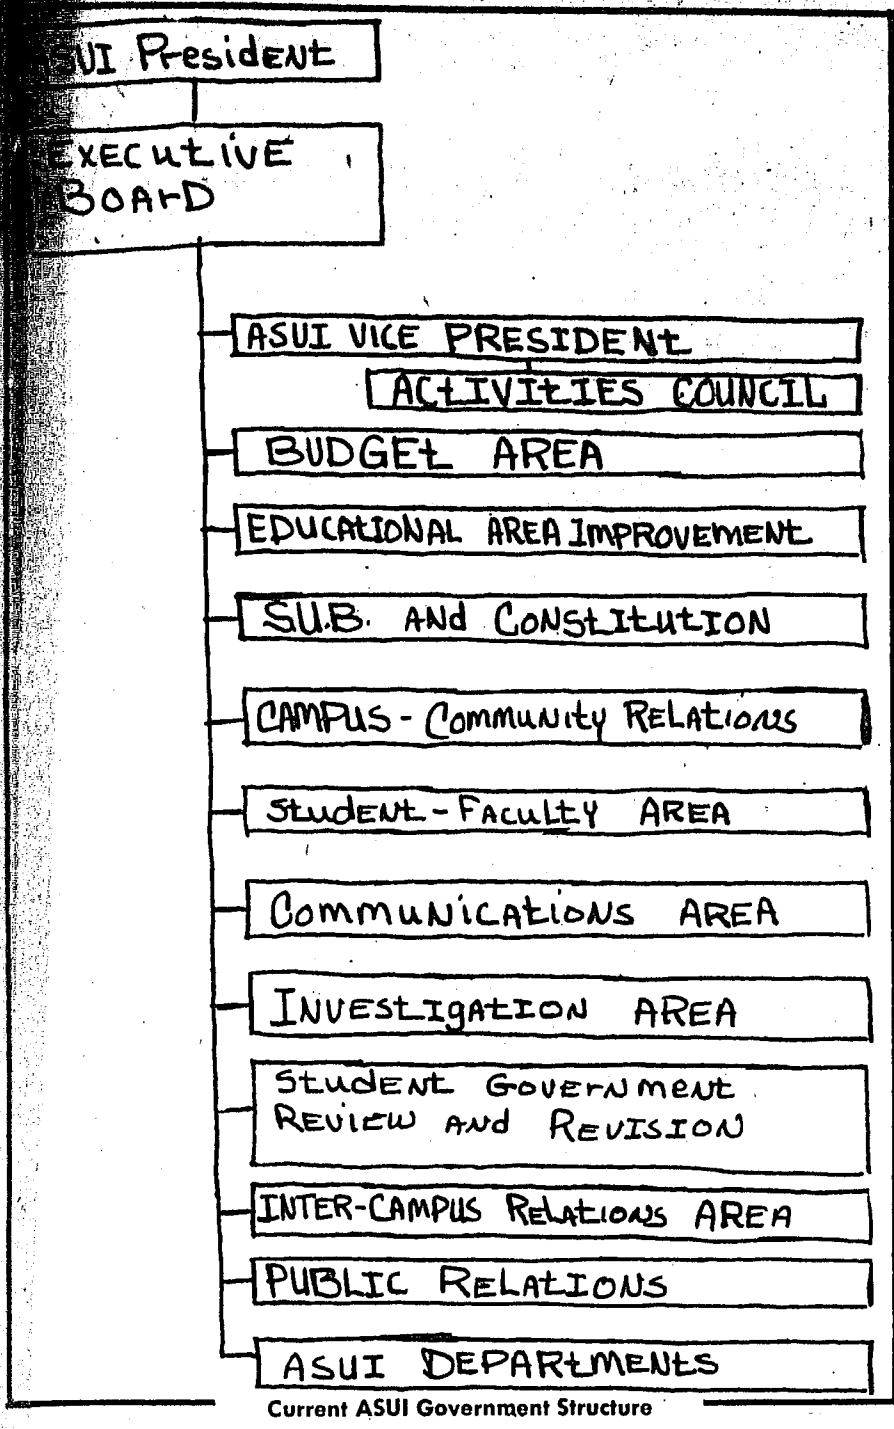 ASUI President
EXECUTIVE
BOARD
ASUI VICE PRESIDENT
ACTIVITIES COUNCIL
BUDGET AREA
EDUCATIONAL AREA IMPROVEMENT
S.U.B. AND CONSTITUTION
CAMPUS - Community RELATIONS
Student - Faculty AREA
Communications AREA
INVESTIGATION AREA
Student Government
REVIEW AND REVISION
INTER-CAMPUS RELATIONS AREA
PUBLIC RELATIONS
ASUI DEPARTMENTS
Current ASUI Government Structure